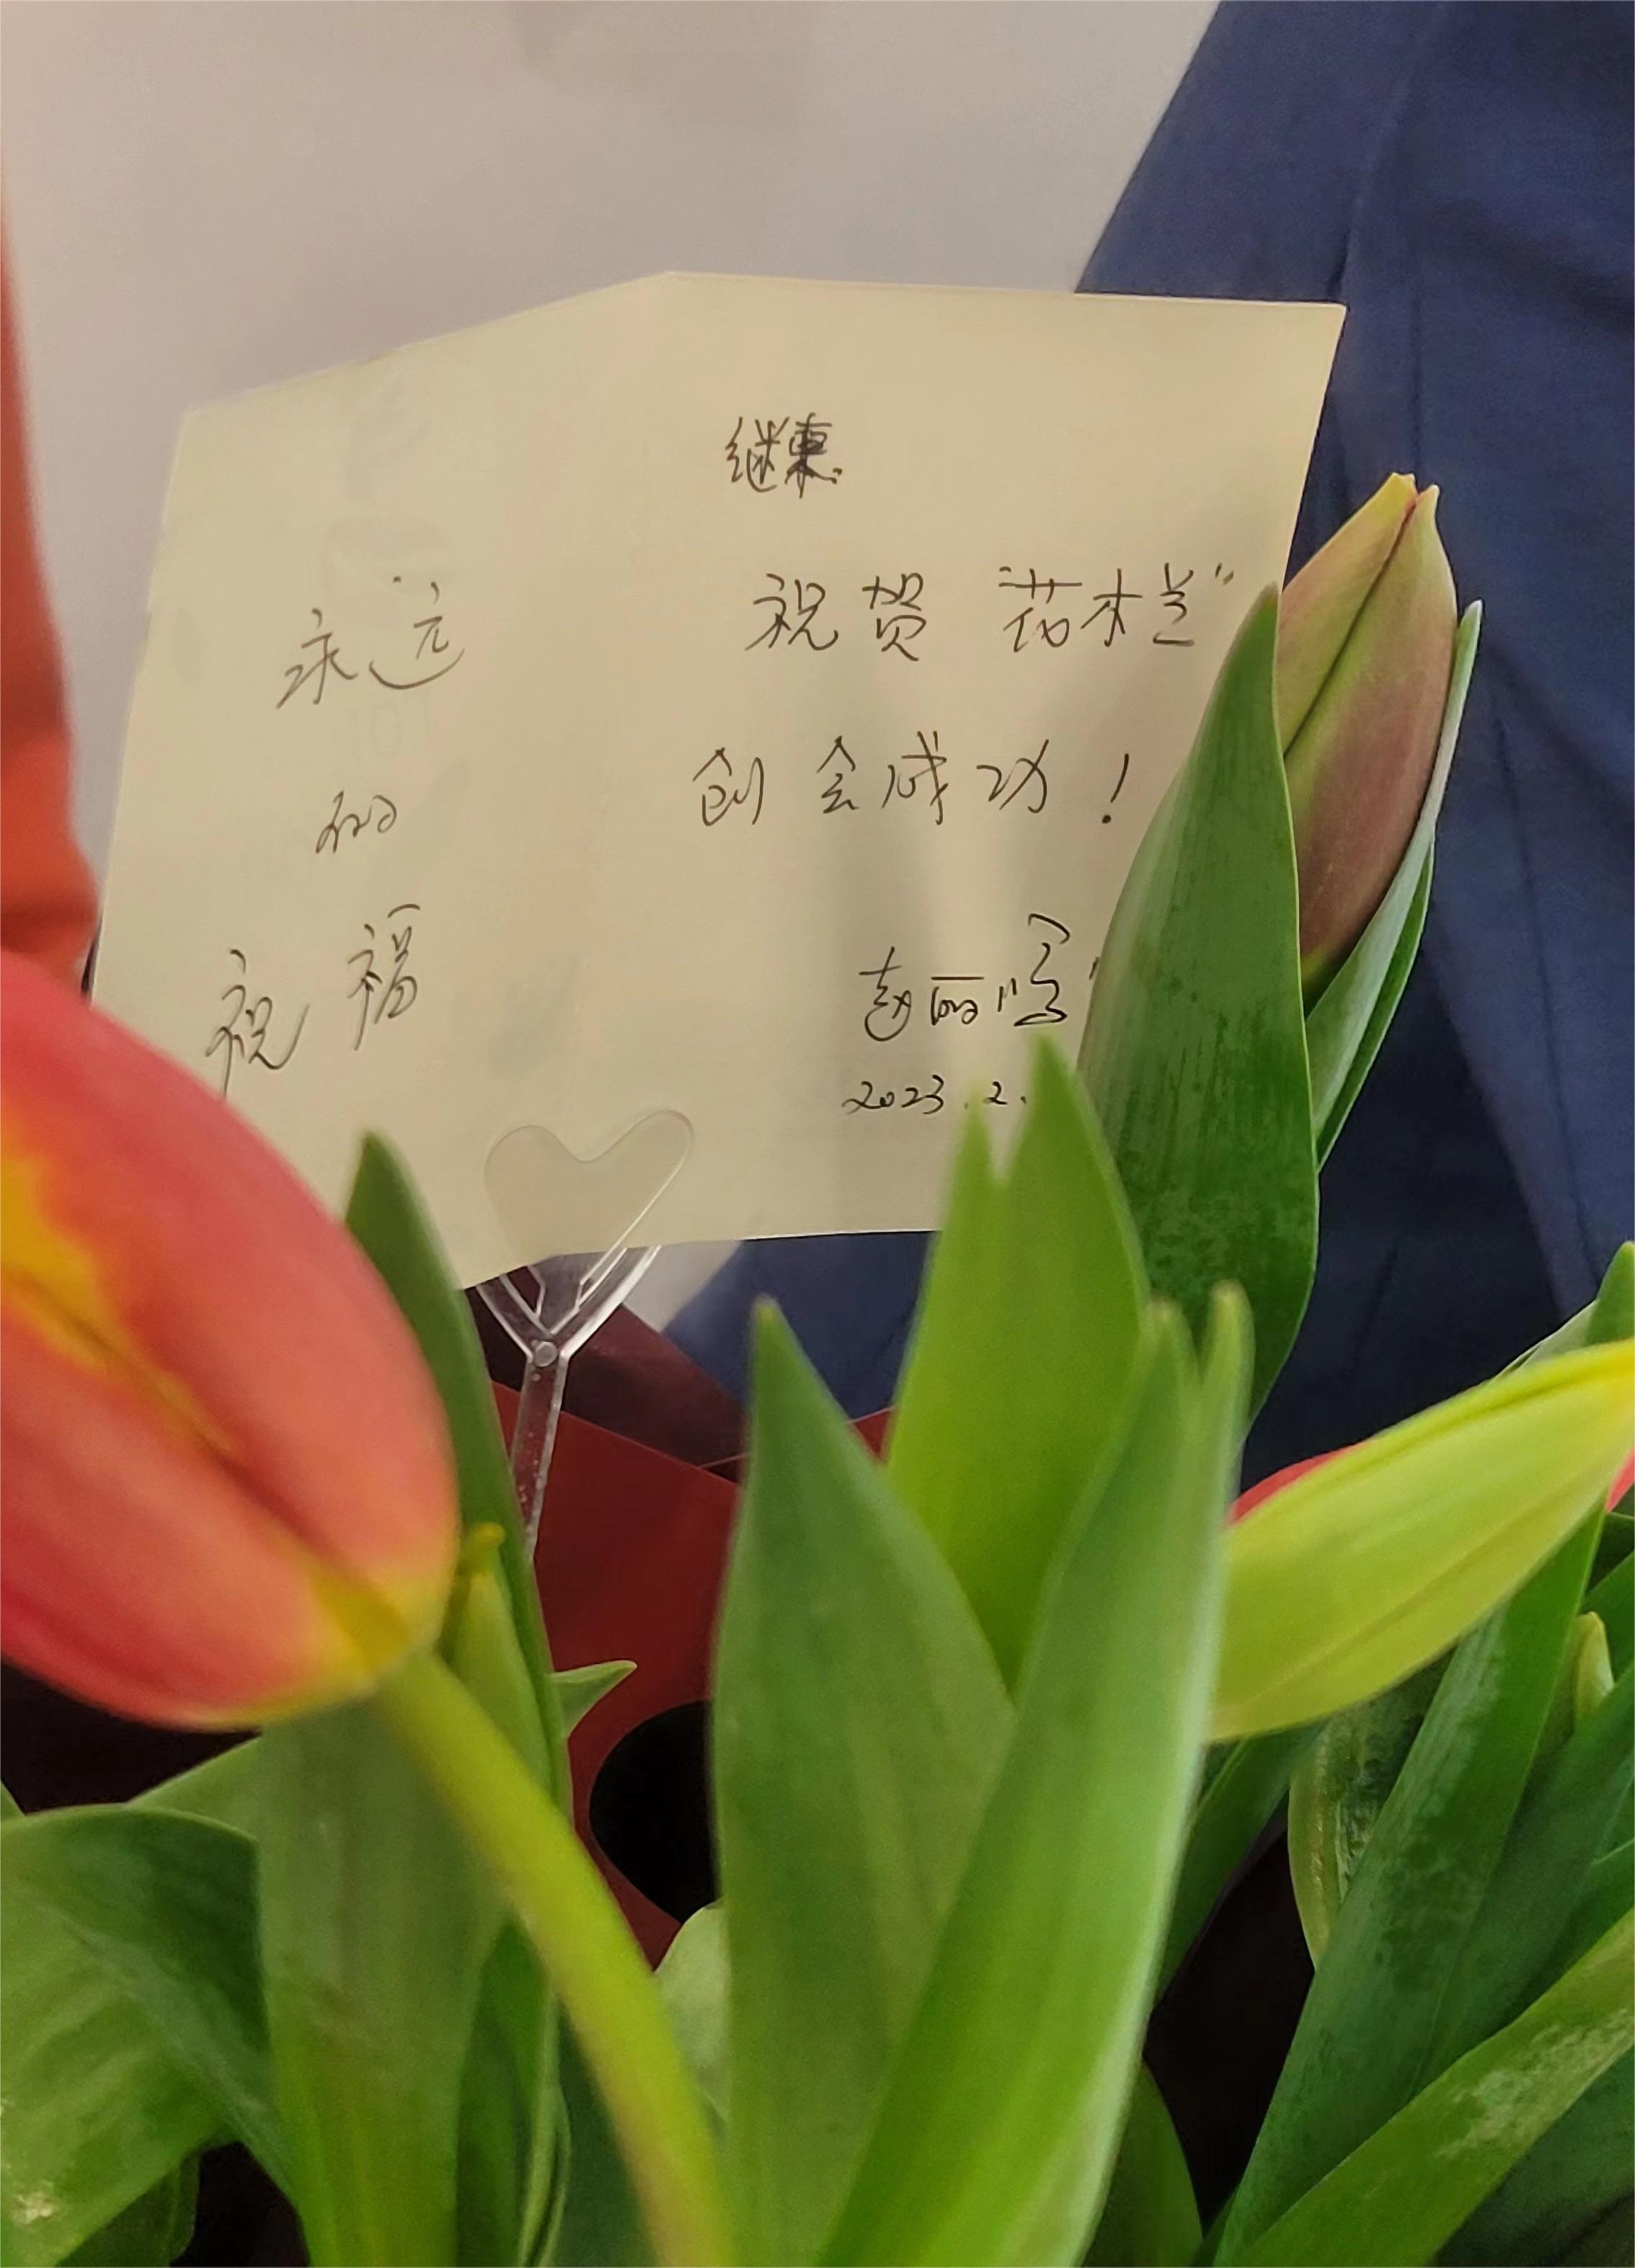 永远
的
祝福
继
祝贺 “花木兰”
创会成功！
赵丽
2023.2.